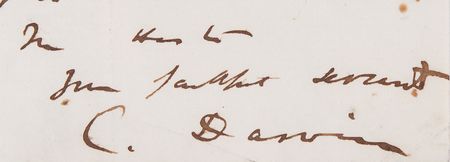 In Haste
Your faithful servant
C. Darwin